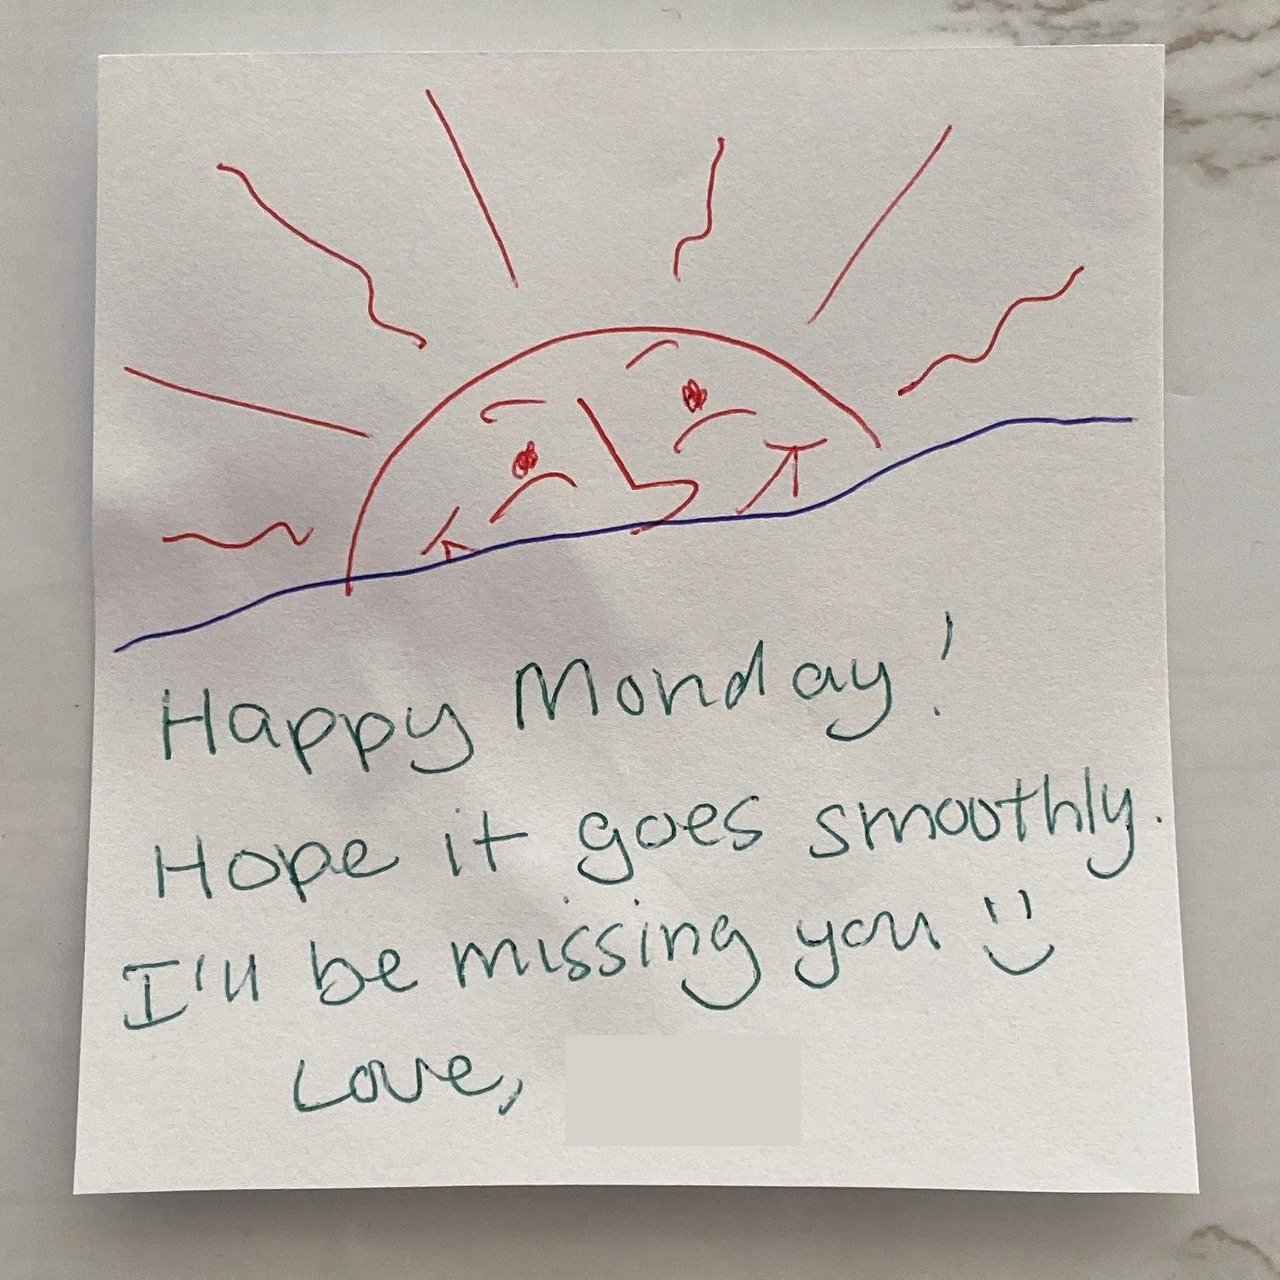 Happy Monday!
Hope it goes smoothly.
I'll be missing you :)
Love,